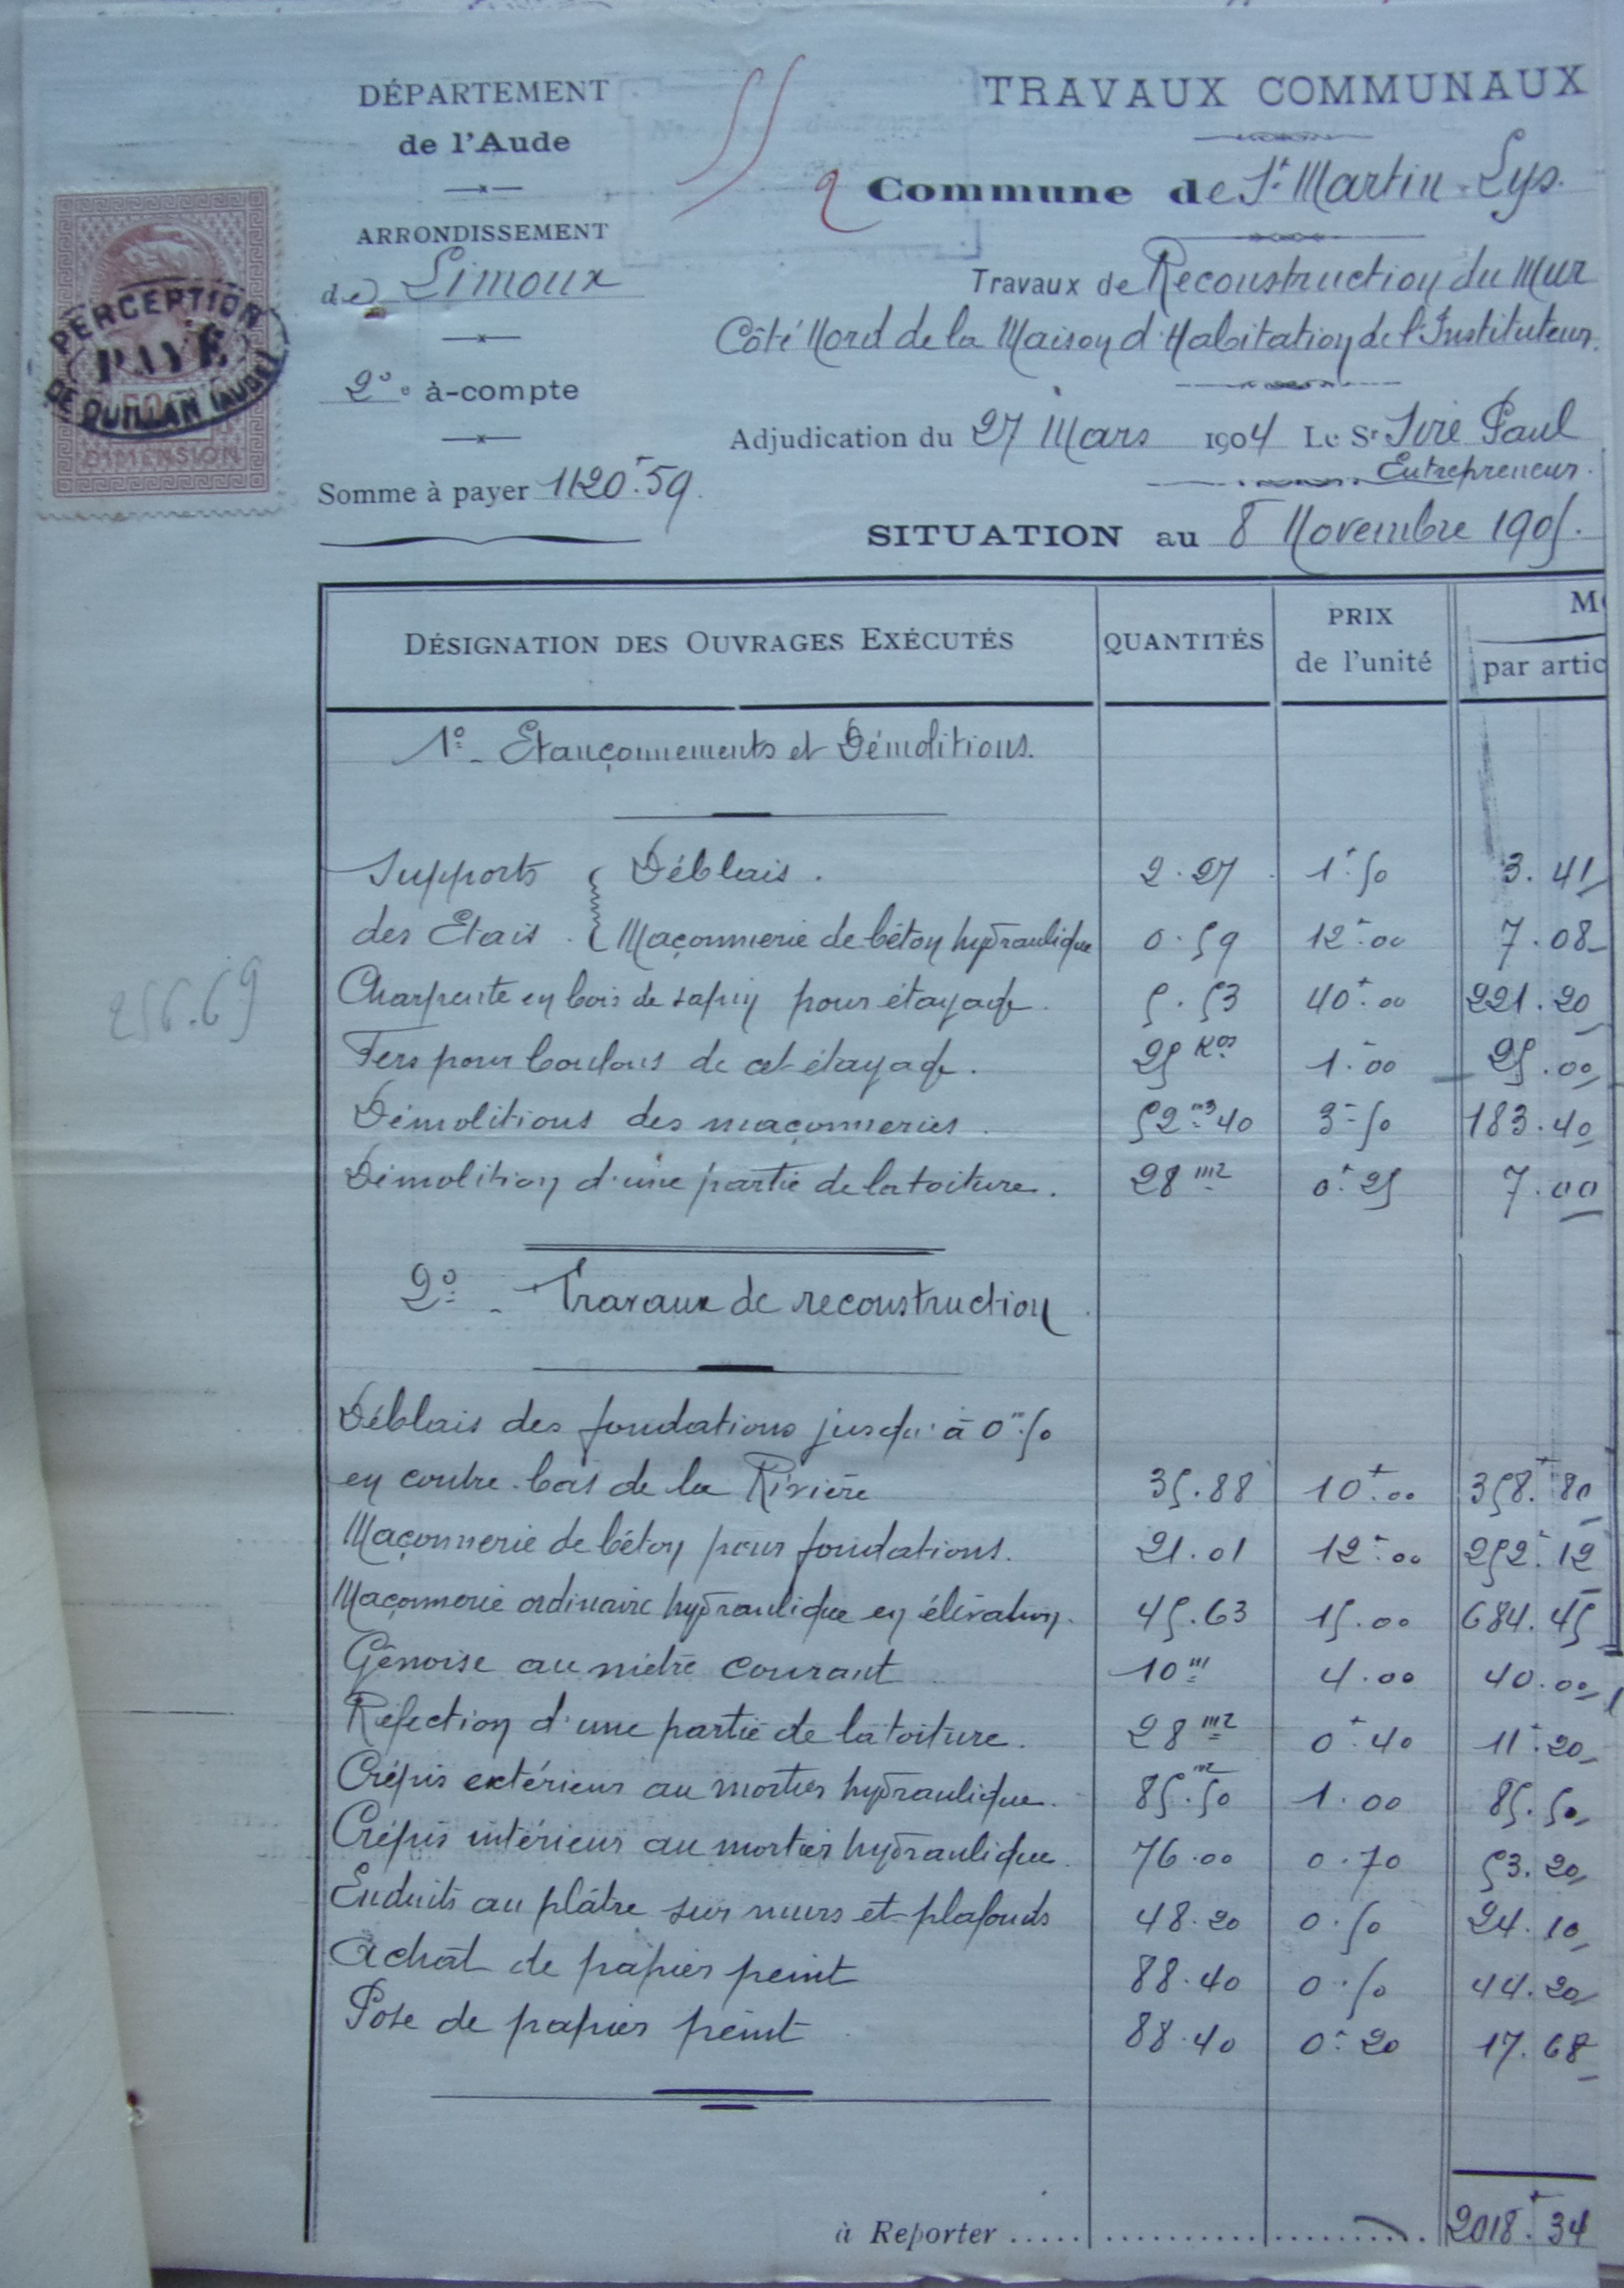 DÉPARTEMENT
de l'Aude
ARRONDISSEMENT
de Limoux
2º à-compte
Somme à payer 1120f.59
PERCEPTION
PAYÉ
DE QUILLAN (AUDE)
DIMENSION
TRAVAUX COMMUNAUX
Commune de St Martin-Lys.
Travaux de Reconstruction du Mur
Côté Nord de la Maison d'Habitation de l'Instituteur.
Adjudication du 27 Mars 1904 Le Sr Siré Paul
Entrepreneur.
SITUATION au 8 Novembre 1905.
DÉSIGNATION DES OUVRAGES EXÉCUTÉS QUANTITÉS PRIX de l'unité par artic
1º - Etançonnements et Démolitions.
Supports { Déblais. 2.27 1f.50 3.41
des Etais { Maçonnerie de béton hydraulique 0.59 12f.00 7.08
Charpente en bois de sapin pour étayage. 5.53 40f.00 221.20
256.69
Fers pour boulons de cet étayage. 25 Kos 1.00 25.00
Démolitions des maçonneries. 52m3 40 3f50 183.40
Démolition d'une partie de la toiture. 28 m2 0f.25 7.00
2º - Travaux de reconstruction
Déblais des fondations jusqu'à 0m.50
en contre-bas de la Rivière 35.88 10f.00 358f.80
Maçonnerie de béton pour fondations. 21.01 12f.00 252f.12
Maçonnerie ordinaire hydraulique en élévation. 45.63 15.00 684.45
Génoise au mètre courant 10m 4.00 40.00
Réfection d'une partie de la toiture. 28 m2 0f.40 11f.20
Crépis extérieur au mortier hydraulique. 85.50 m2 1.00 85.50
Crépis intérieur au mortier hydraulique. 76.00 0.70 53.20
Enduits au plâtre sur murs et plafonds 48.20 0.50 24.10
Achat de papier peint 88.40 0.50 44.20
Pose de papier peint 88.40 0f.20 17.68
à Reporter ..... 2018f.34